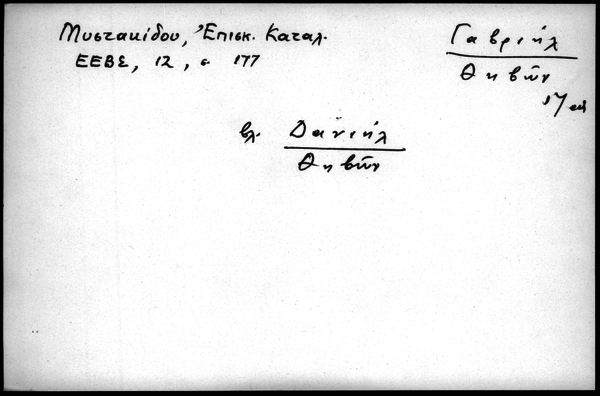 Μυστακίδου, Ἐπισκ. Καταλ.
ΕΕΒΣ, 12, σ 177
Γαβριήλ
Θηβῶν
17
βλ. Δανιήλ
Θηβῶν